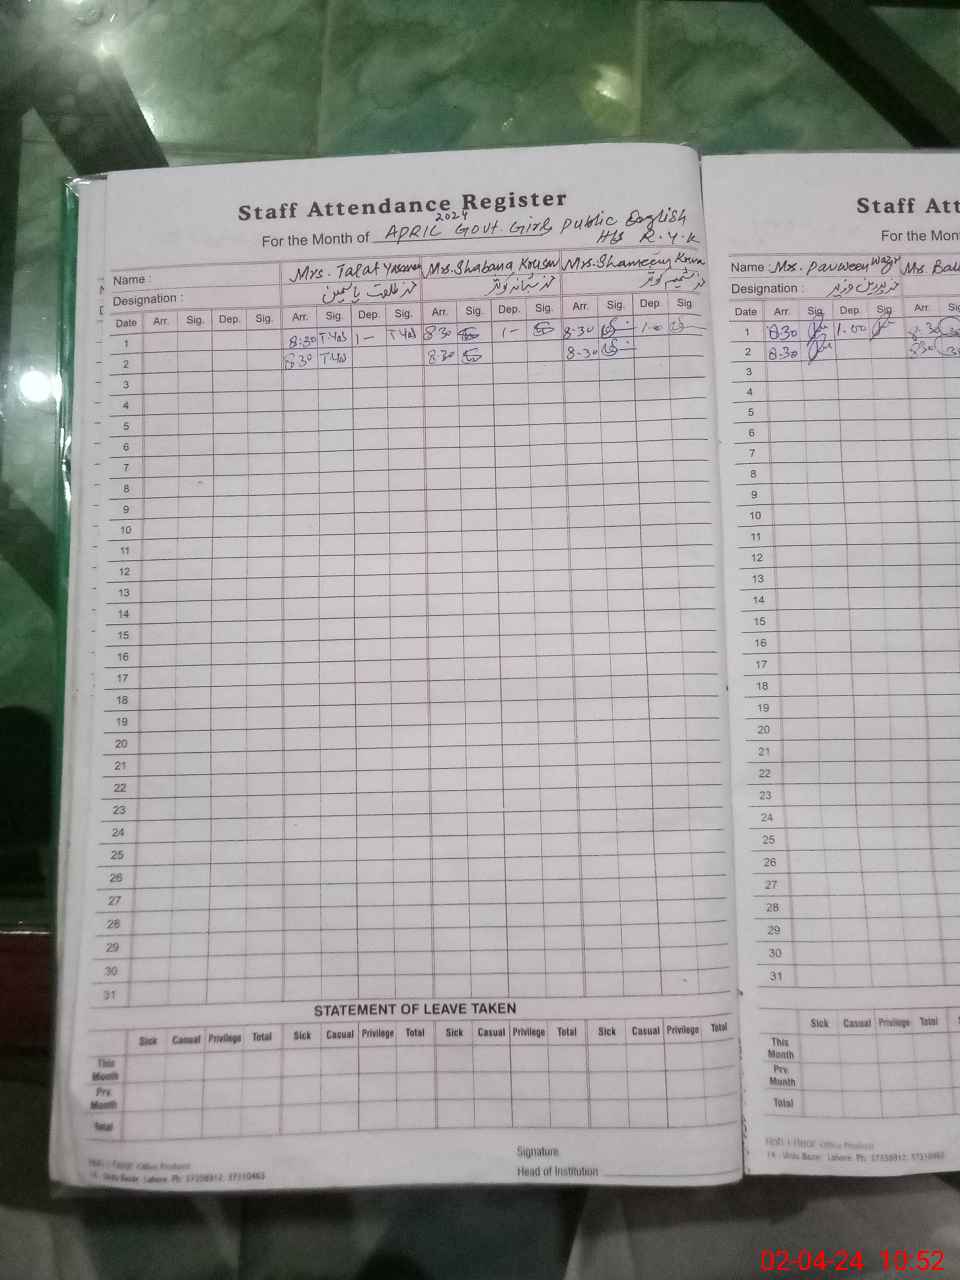 Staff Attendance Register
2024
For the Month of APRIL Govt. Girls Public English
Hss R.Y.K
Name : Mrs. Talat Yasmeen Mrs. Shabana Kousar Mrs. Shameem
Designation : طلعت یاسمین شبانہ کوثر شمیم کوثر
Date Arr. Sig. Dep. Sig. Arr. Sig. Dep. Sig. Arr. Sig. Dep. Sig. Arr. Sig. Dep. Sig.
1 8:30 T.Yas 1- T.Yas 8-30 1- 8-30 1-0
2 8:30 T.Yas 8:30 8-30
3
4
5
6
7
8
9
10
11
12
13
14
15
16
17
18
19
20
21
22
23
24
25
26
27
28
29
30
31
STATEMENT OF LEAVE TAKEN
Sick Casual Privilege Total Sick Casual Privilege Total Sick Casual Privilege Total Sick Casual Privilege Total
This
Month
Prv.
Month
Total
Signature
Head of Institution
14 - Urdu Bazar Lahore Ph: 37358312, 37310463
Staff Att
For the Mon
Name : Mrs. Parveen Ms
Designation :
Date Arr. Sig. Dep. Sig. Arr.
1 8:30 1.00 8.30
2 8:30 8:30
3
4
5
6
7
8
9
10
11
12
13
14
15
16
17
18
19
20
21
22
23
24
25
26
27
28
29
30
31
Sick Casual Privilege Total
This
Month
Prv.
Month
Total
14 - Urdu Bazar Lahore Ph: 37358312, 37310463
02-04-24 10:52